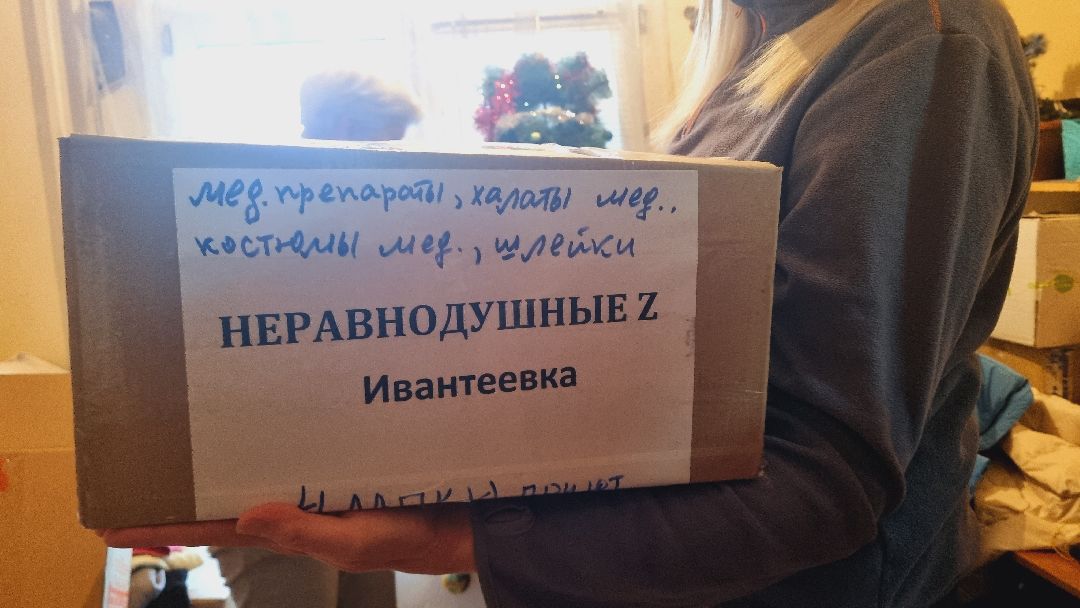 мед. препараты, халаты мед.,
костюмы мед., шлейки
НЕРАВНОДУШНЫЕ Z
Ивантеевка
приют